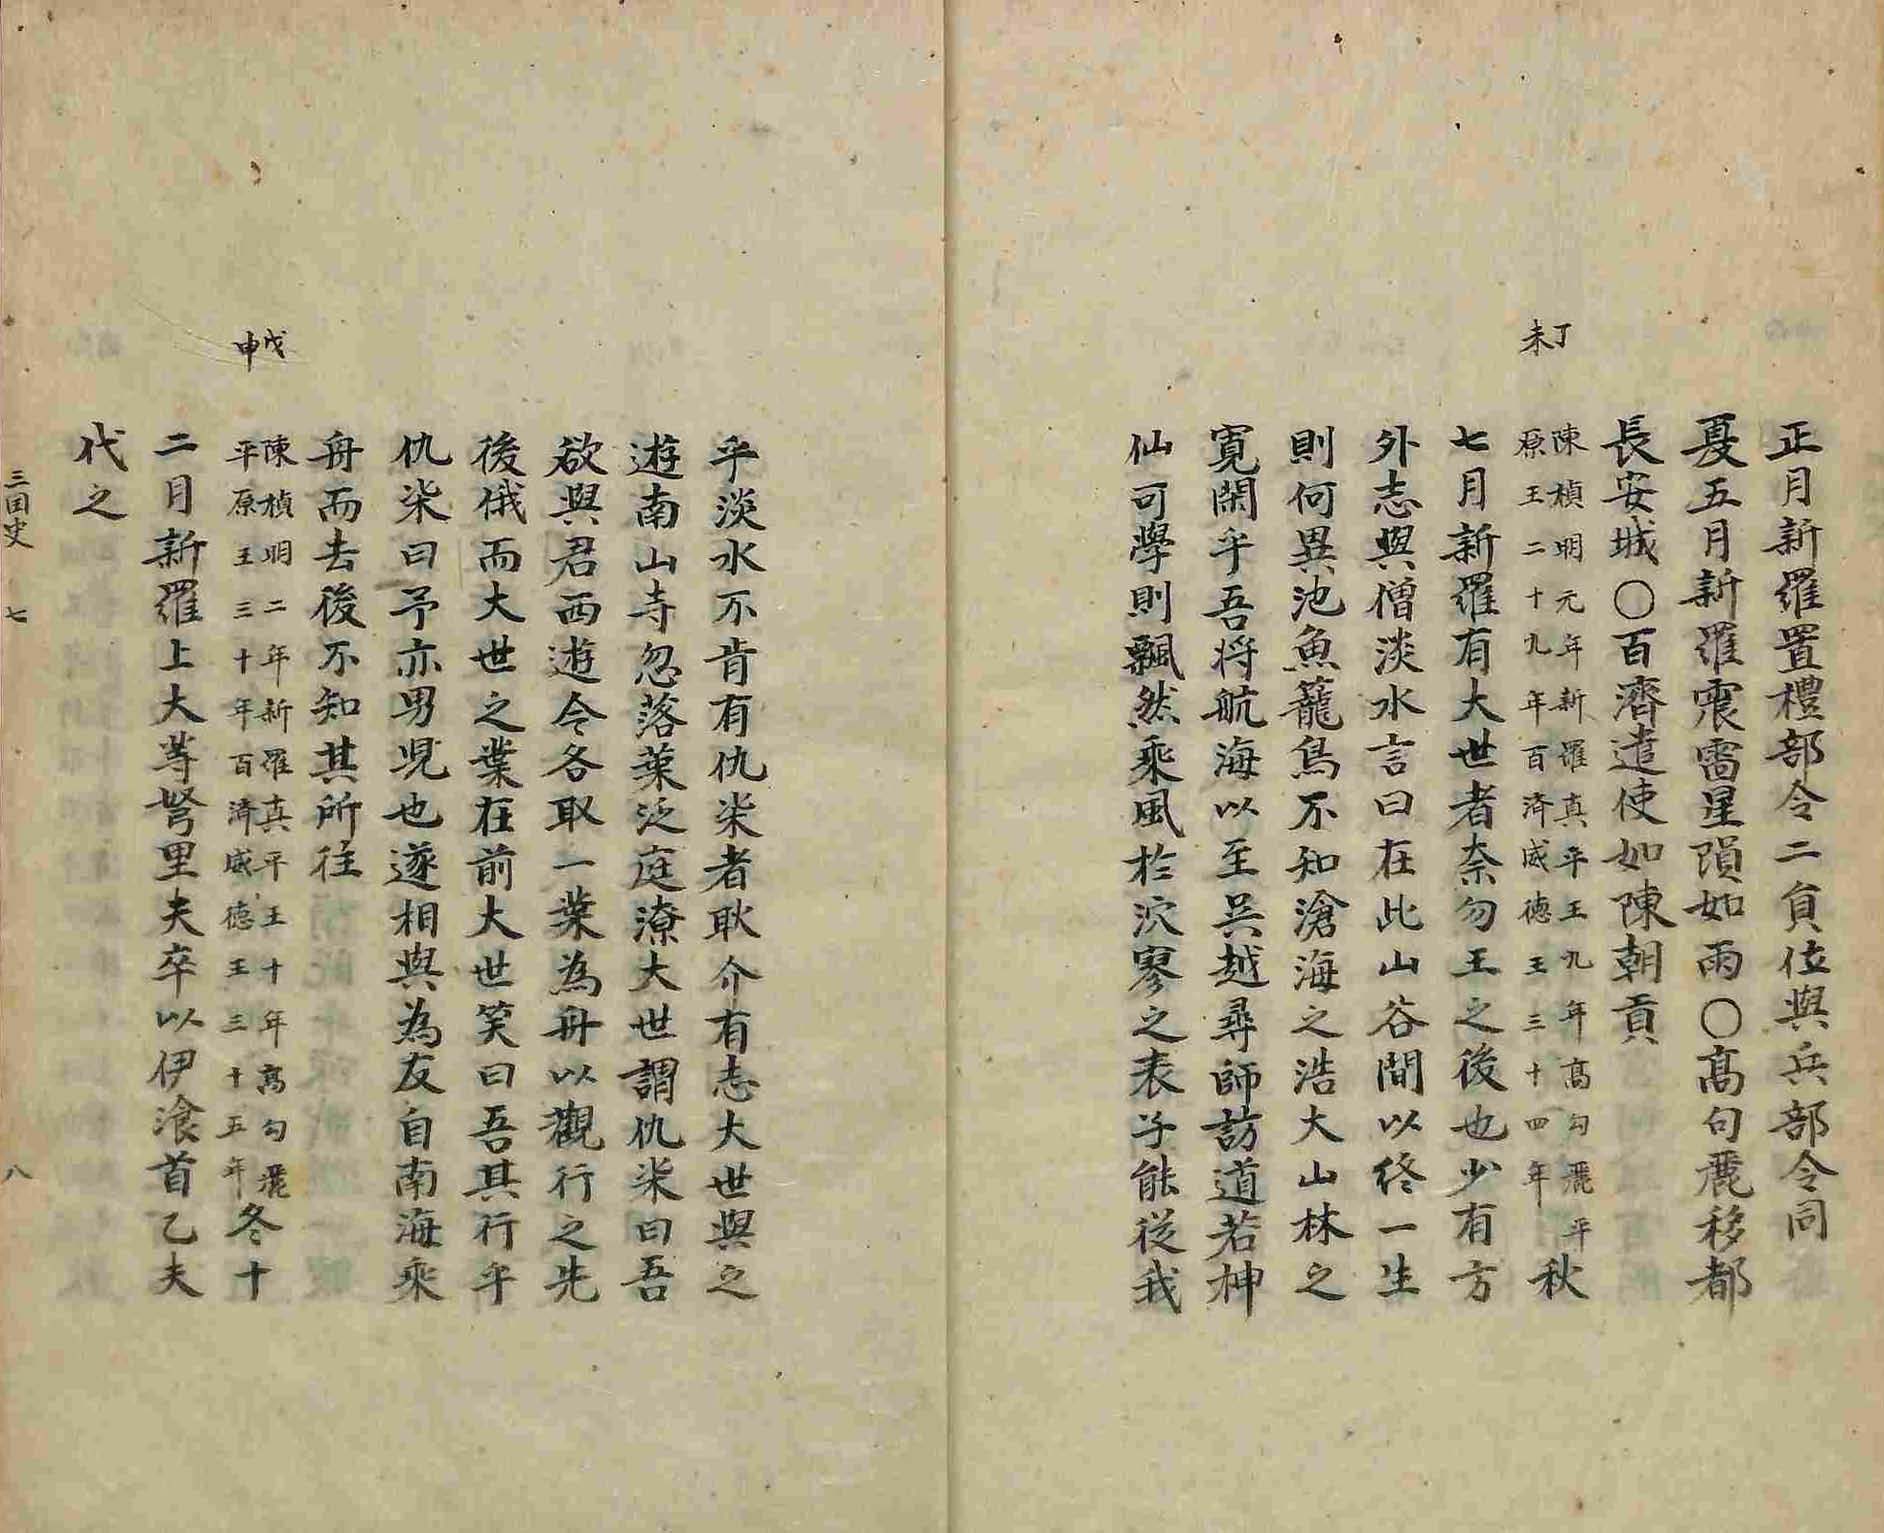 正月新羅置禮部令二負位與兵部令同
夏五月新羅震雷星隕如雨〇高句麗移都
長安城〇百濟遣使如陳朝貢
丁未
陳楨明元年新羅真平王九年高句麗平
原王二十九年百済威德王三十四年
秋
七月新羅有大世者奈勿王之後也少有方
外志與僧淡水言曰在此山谷間以終一生
則何異池魚籠鳥不知滄海之浩大山林之
寛閑乎吾将航海以至吳越尋師訪道若神
仙可學則飄然乘風於泬寥之表子能從我
乎淡水不肯有仇柒者耿介有志大世與之
遊南山寺忽落葉泛庭潦大世謂仇柒曰吾
欲與君西遊令各取一葉為舟以觀行之先
後俄而大世之葉在前大世笑曰吾其行乎
仇柒曰予亦男児也遂相與為友自南海乘
舟而去後不知其所往
戊申
陳楨明二年新羅真平王十年高勾麗
平原王三十年百済威德王三十五年
冬十
二月新羅上大等弩里夫卒以伊飡首乙夫
代之
三国史 七 八